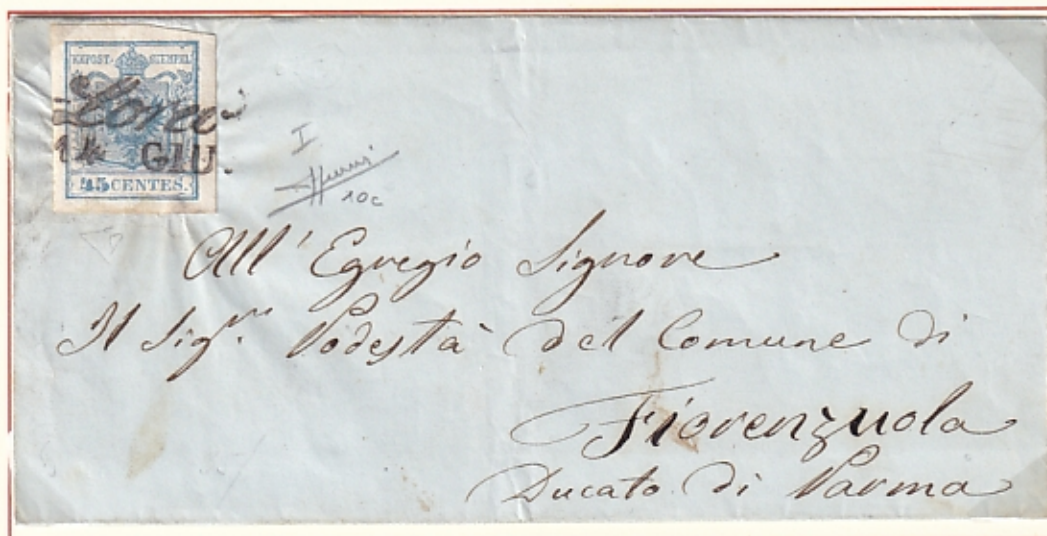 KKPOST-STEMPEL
Loreo
14 GIU.
45 CENTES.
I
10c
All' Egregio Signore
Il Sigr. Podestà del Comune di
Fiorenzuola
Ducato di Parma